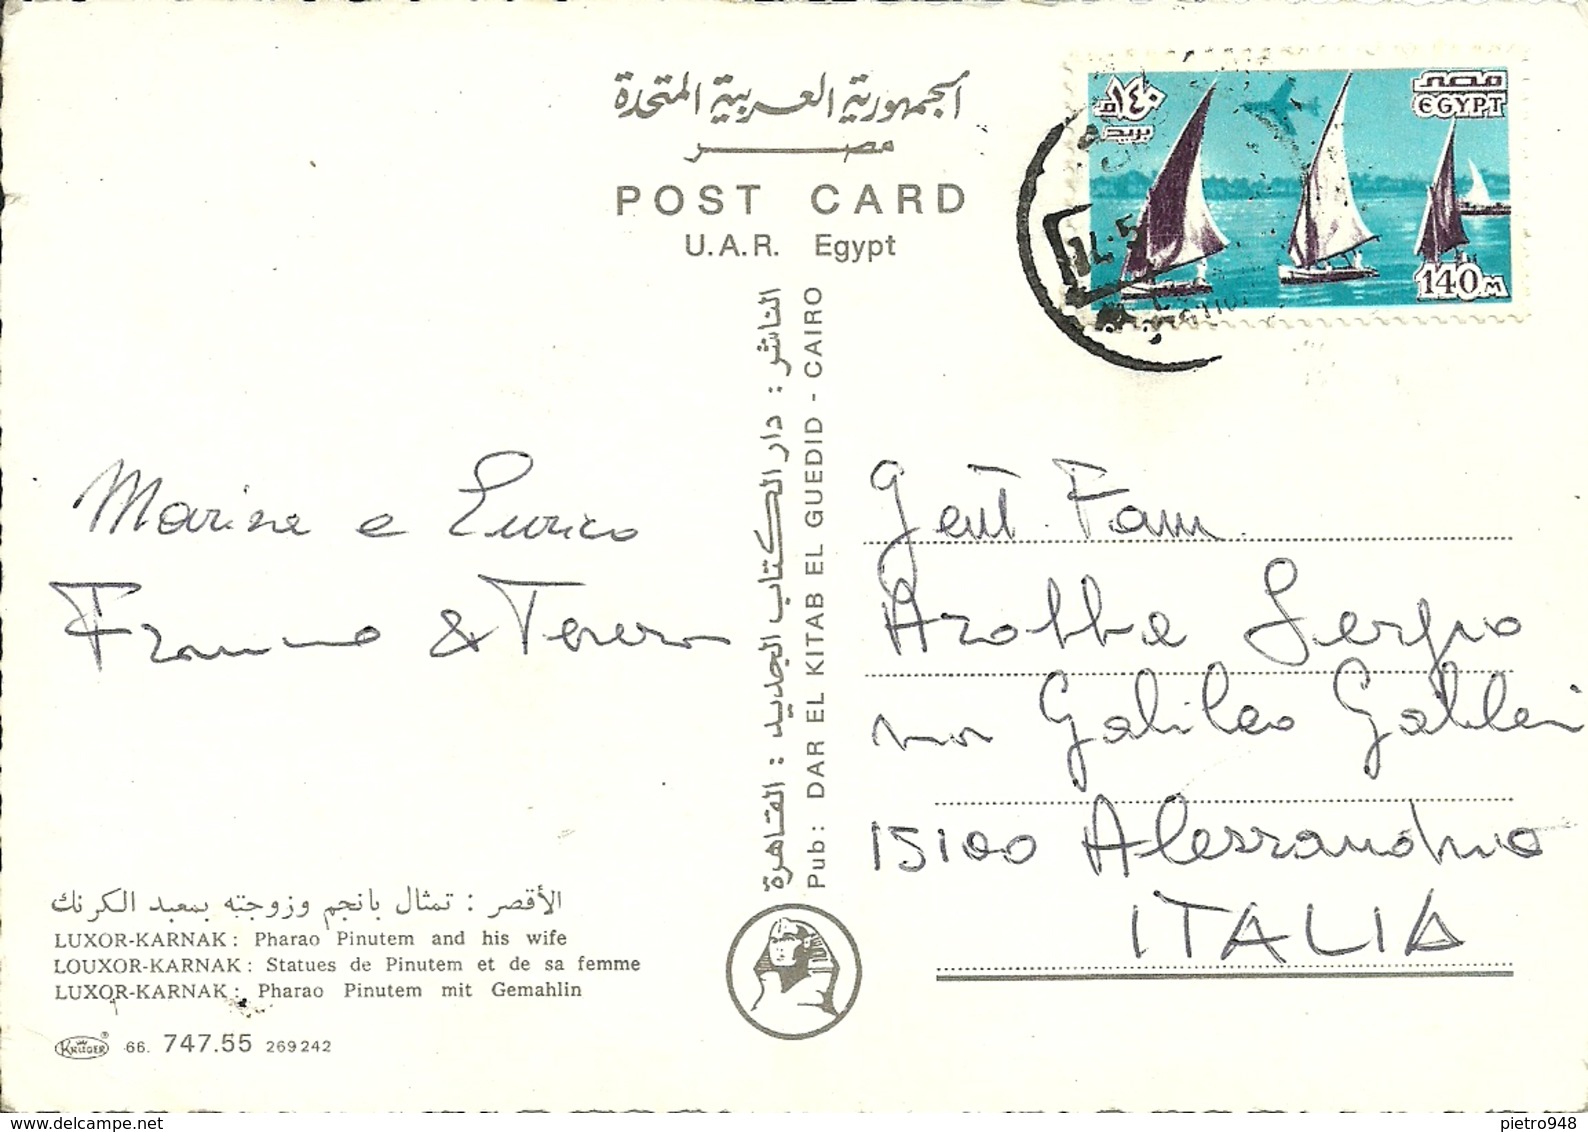 الجمهورية العربية المتحدة
مصر
POST CARD
U.A.R. Egypt
١٤٠م
بريد
مصر
EGYPT
140 M
14.5
الناشر : دار الكتاب الجديد : القاهرة
Pub: DAR EL KITAB EL GUEDID - CAIRO
Marisa e Enrico
Franco & Teresa
Gent. Fam.
Arobbe Sergio
via Galileo Galilei
15100 Alessandria
ITALIA
الأقصر : تمثال بانجم وزوجته بمعبد الكرنك
LUXOR-KARNAK: Pharao Pinutem and his wife
LOUXOR-KARNAK: Statues de Pinutem et de sa femme
LUXOR-KARNAK: Pharao Pinutem mit Gemahlin
KRÜGER® 66. 747.55 269242
www.delcampe.net
pietro948